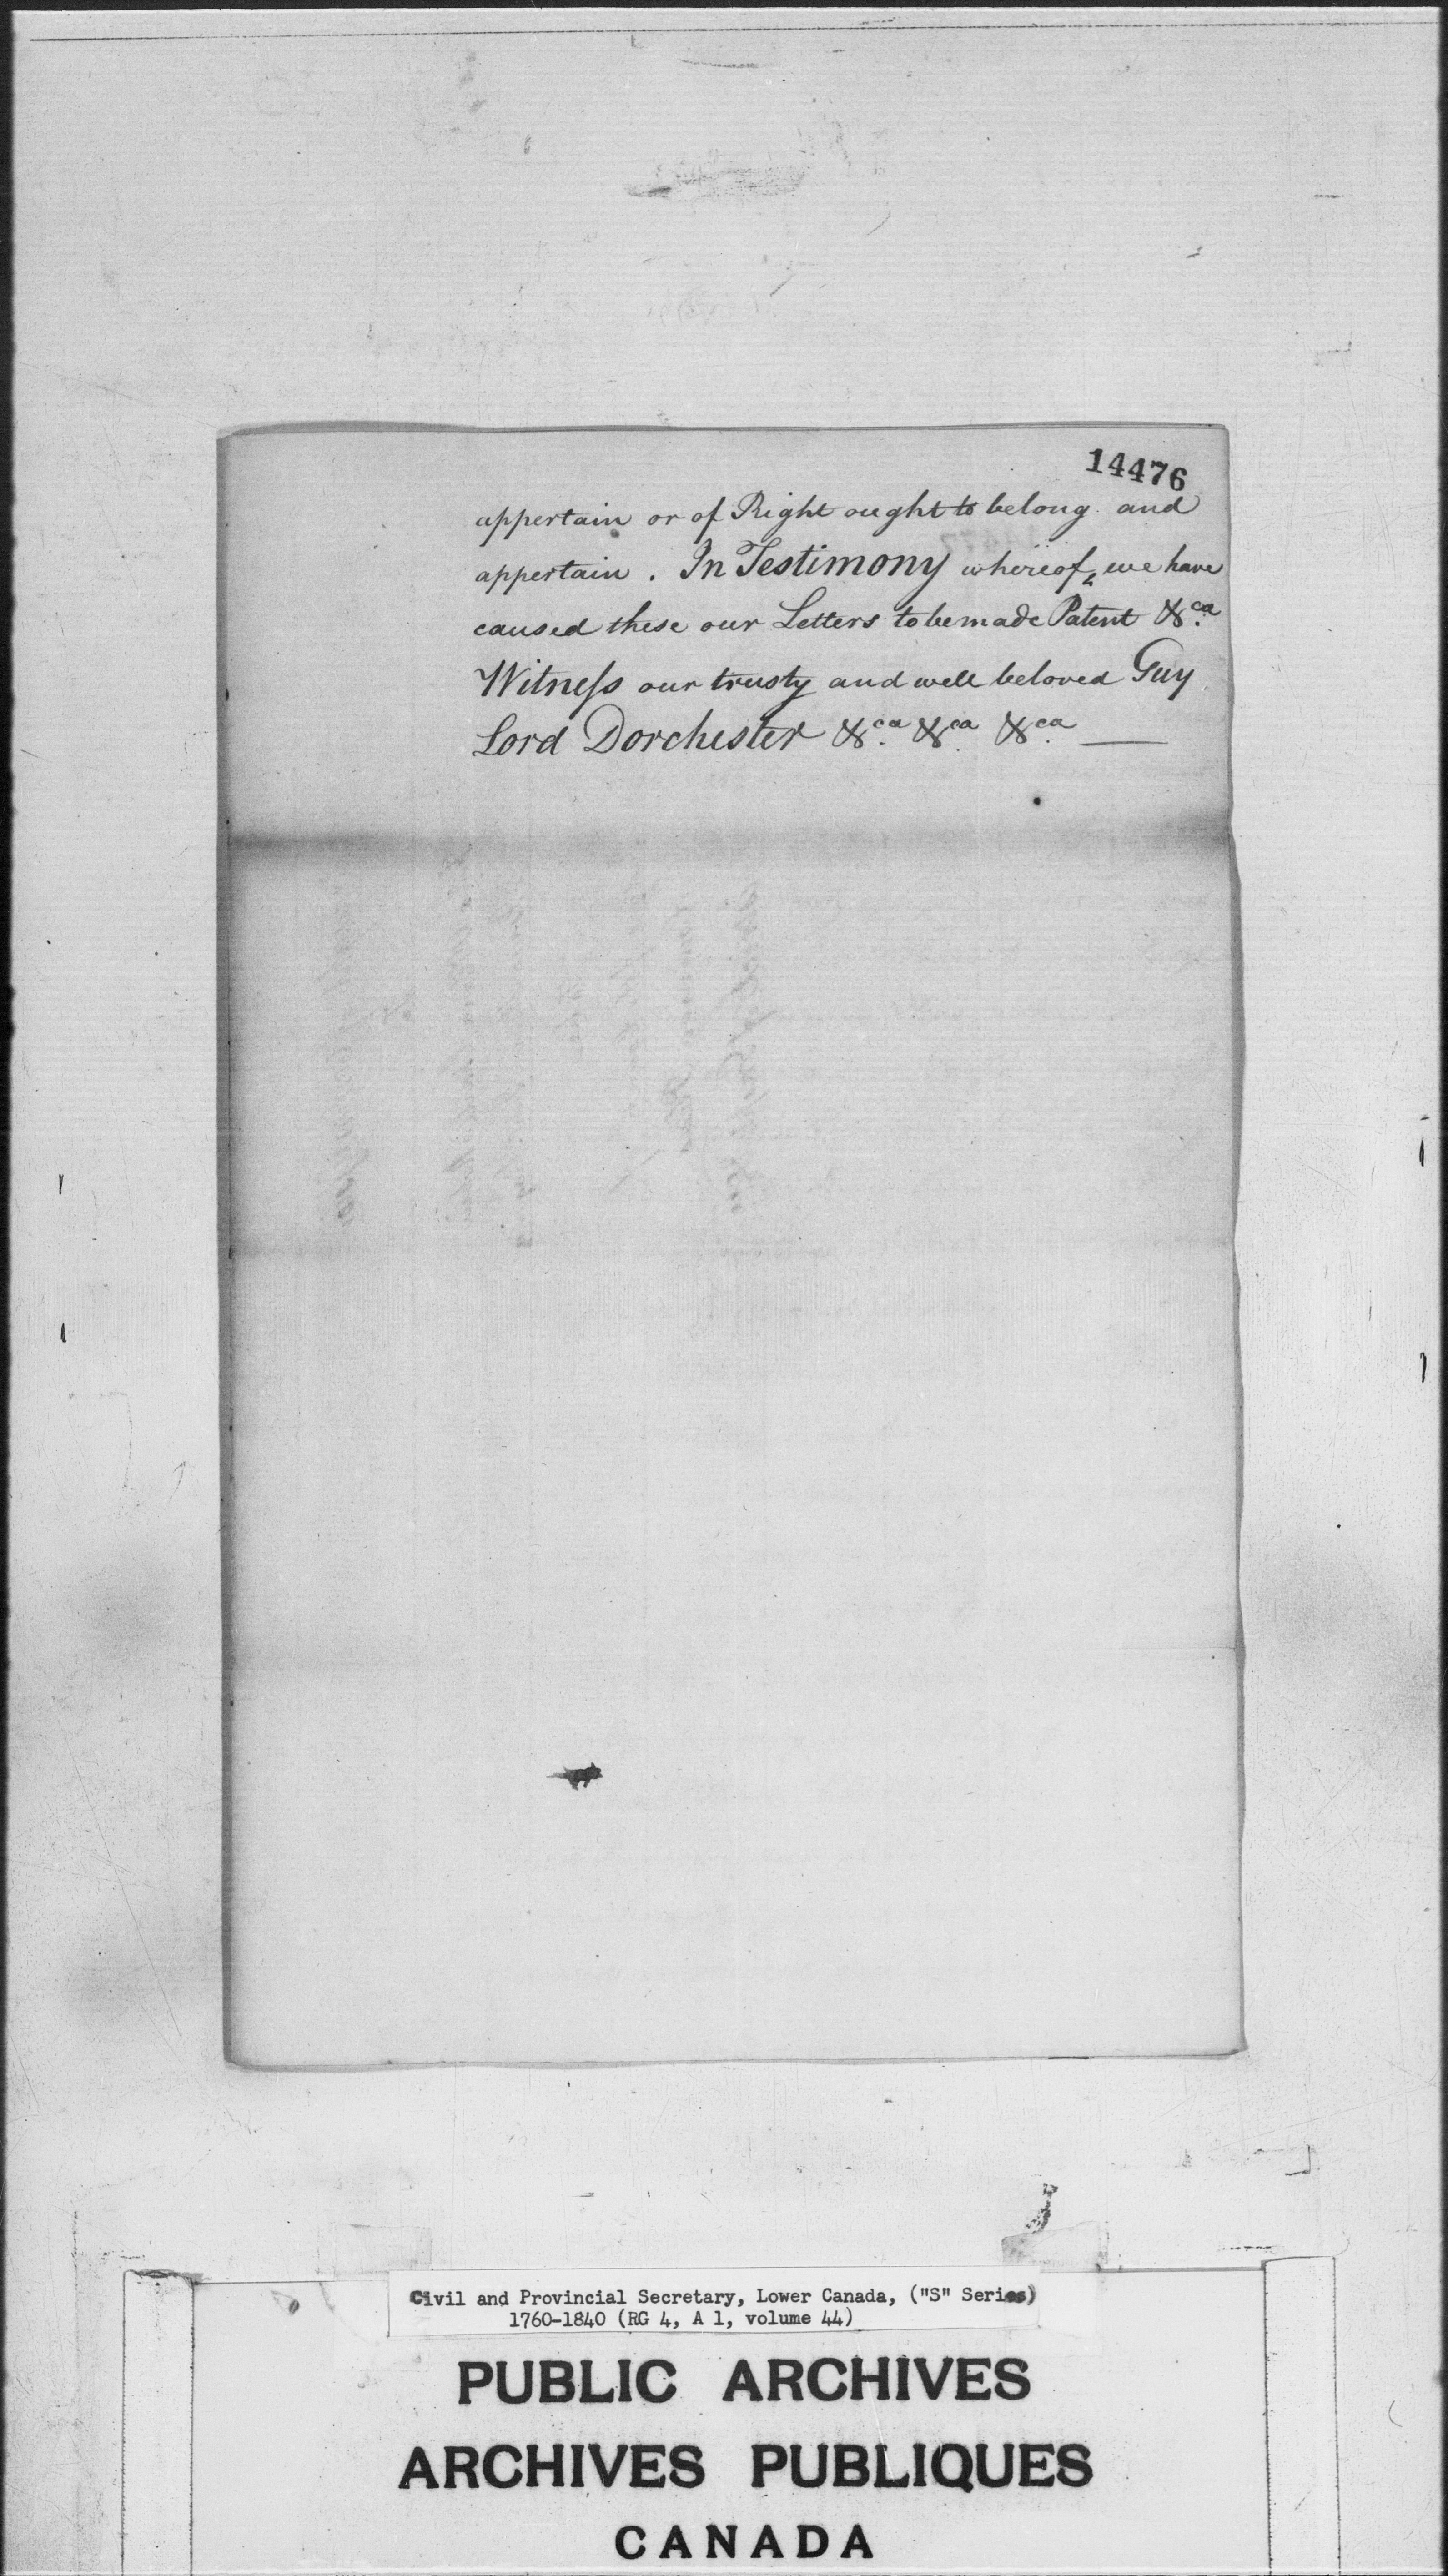 14476
appertain or of Right ought to belong and
appertain. In Testimony whereof, we have
caused these our Letters to be made Patent &ca.
Witneſs our trusty and well beloved Guy
Lord Dorchester &ca. &ca. &ca. —
Civil and Provincial Secretary, Lower Canada, ("S" Series)
1760-1840 (RG 4, A 1, volume 44)
PUBLIC ARCHIVES
ARCHIVES PUBLIQUES
CANADA